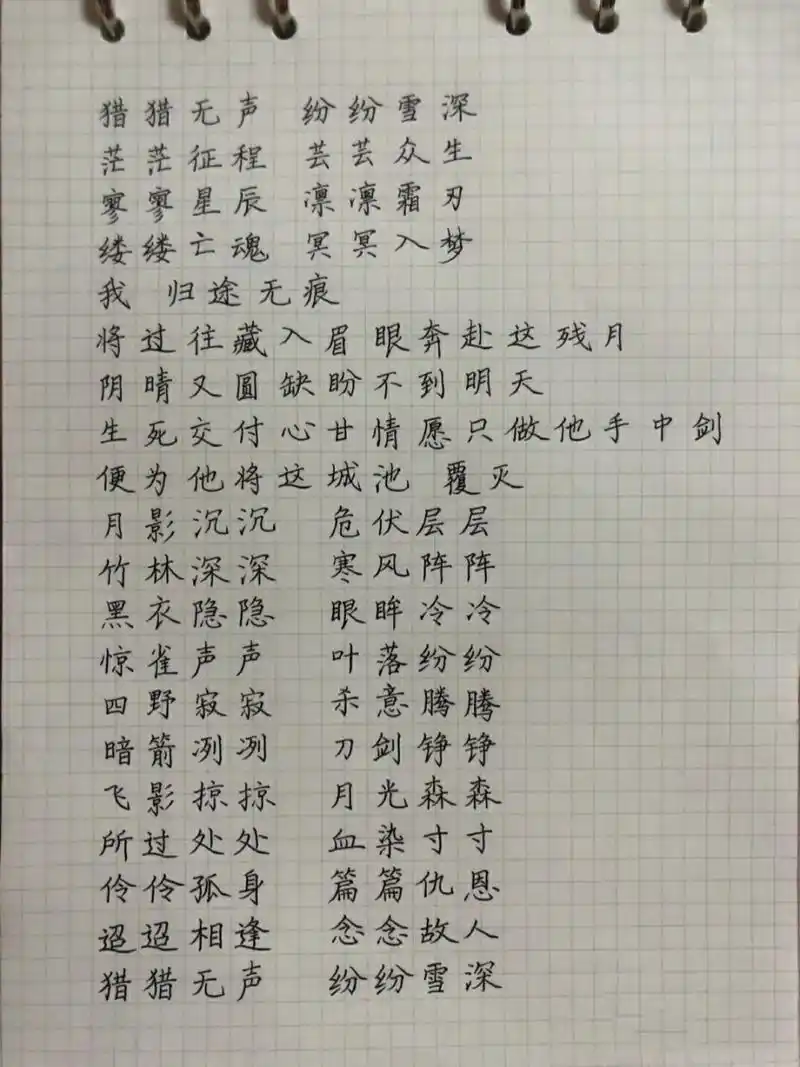 猎猎无声 纷纷雪深
茫茫征程 芸芸众生
寥寥星辰 凛凛霜刃
缕缕亡魂 冥冥入梦
我 归途无痕
将过往藏入眉眼奔赴这残月
阴晴又圆缺盼不到明天
生死交付心甘情愿只做他手中剑
便为他将这城池 覆灭
月影沉沉 危伏层层
竹林深深 寒风阵阵
黑衣隐隐 眼眸冷冷
惊雀声声 叶落纷纷
四野寂寂 杀意腾腾
暗箭冽冽 刀剑铮铮
飞影掠掠 月光森森
所过处处 血染寸寸
伶伶孤身 篇篇仇恩
迢迢相逢 念念故人
猎猎无声 纷纷雪深